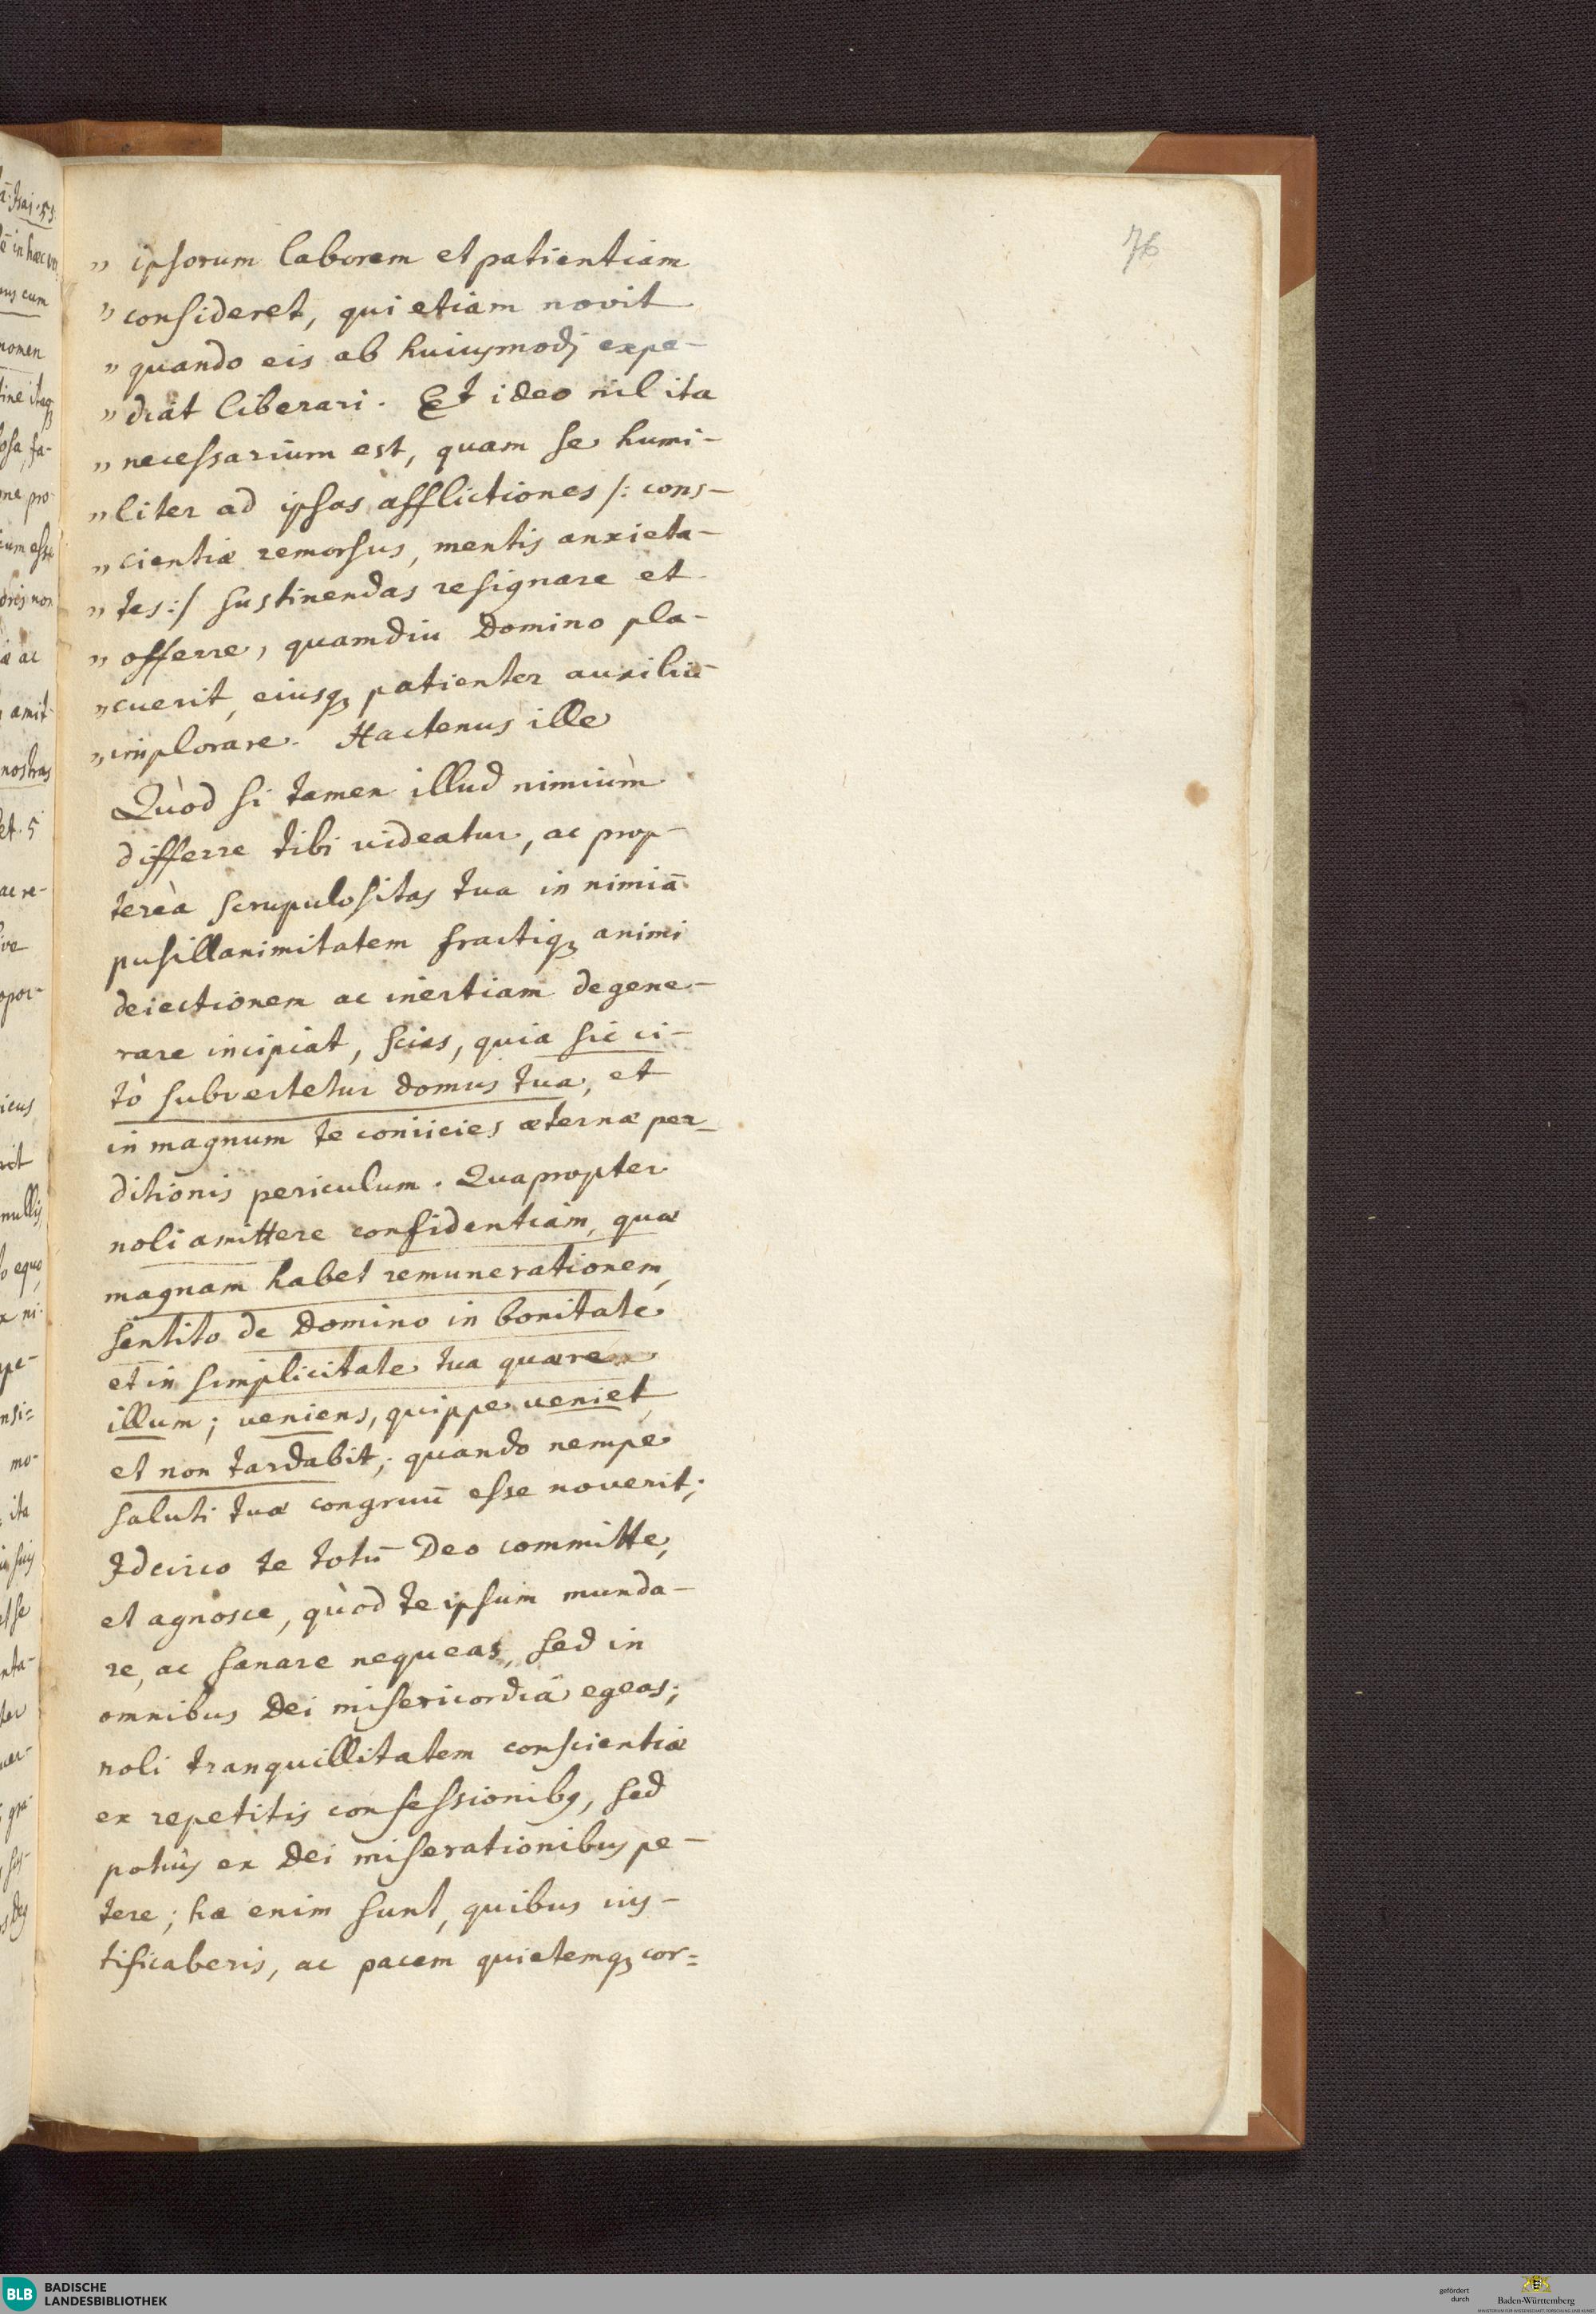 76
„ ipsorum laborem et patientiam
„ consideret, qui etiam novit
„ quando eis ab huiusmodj expe-
„ diat liberari. Et ideo nil ita
„ necessarium est, quam se humi-
„ liter ad ipsas afflictiones /: cons-
„ cientiæ remorsus, mentis anxieta-
„ tes :/ sustinendas resignare et
„ offerre, quamdiu Domino pla-
„ cuerit, eiusqȝ patienter auxiliū
„ implorare. Hactenus ille
Quòd si tamen illud nimiùm
differre tibi videatur, ac prop-
tereà scrupulositas tua in nimiā
pusillanimitatem fractiqȝ animi
deiectionem ac inertiam degene-
rare incipiat, scias, quia sic ci-
tò subvertetur domus tua, et
in magnum te coniicies æternæ per-
ditionis periculum. Quapropter
noli amittere confidentiam, quæ
magnam habet remunerationem,
sentito de Domino in bonitate
et in simplicitate tua quære
illum; veniens, quippe veniet,
et non tardabit; quando nempe
saluti tuæ congruū esse noverit;
Idcirco te totū Deo committe,
et agnosce, quòd te ipsum munda-
re, ac sanare nequeas, sed in
omnibus Dei misericordiâ egeas;
noli tranquillitatem conscientiæ
ex repetitis confessionibȝ, sed
potiùs ex Dei miserationibus pe-
tere; hæ enim sunt, quibus ius-
tificaberis, ac pacem quietemqȝ cor=
BLB
BADISCHE
LANDESBIBLIOTHEK
gefördert
durch
Baden-Württemberg